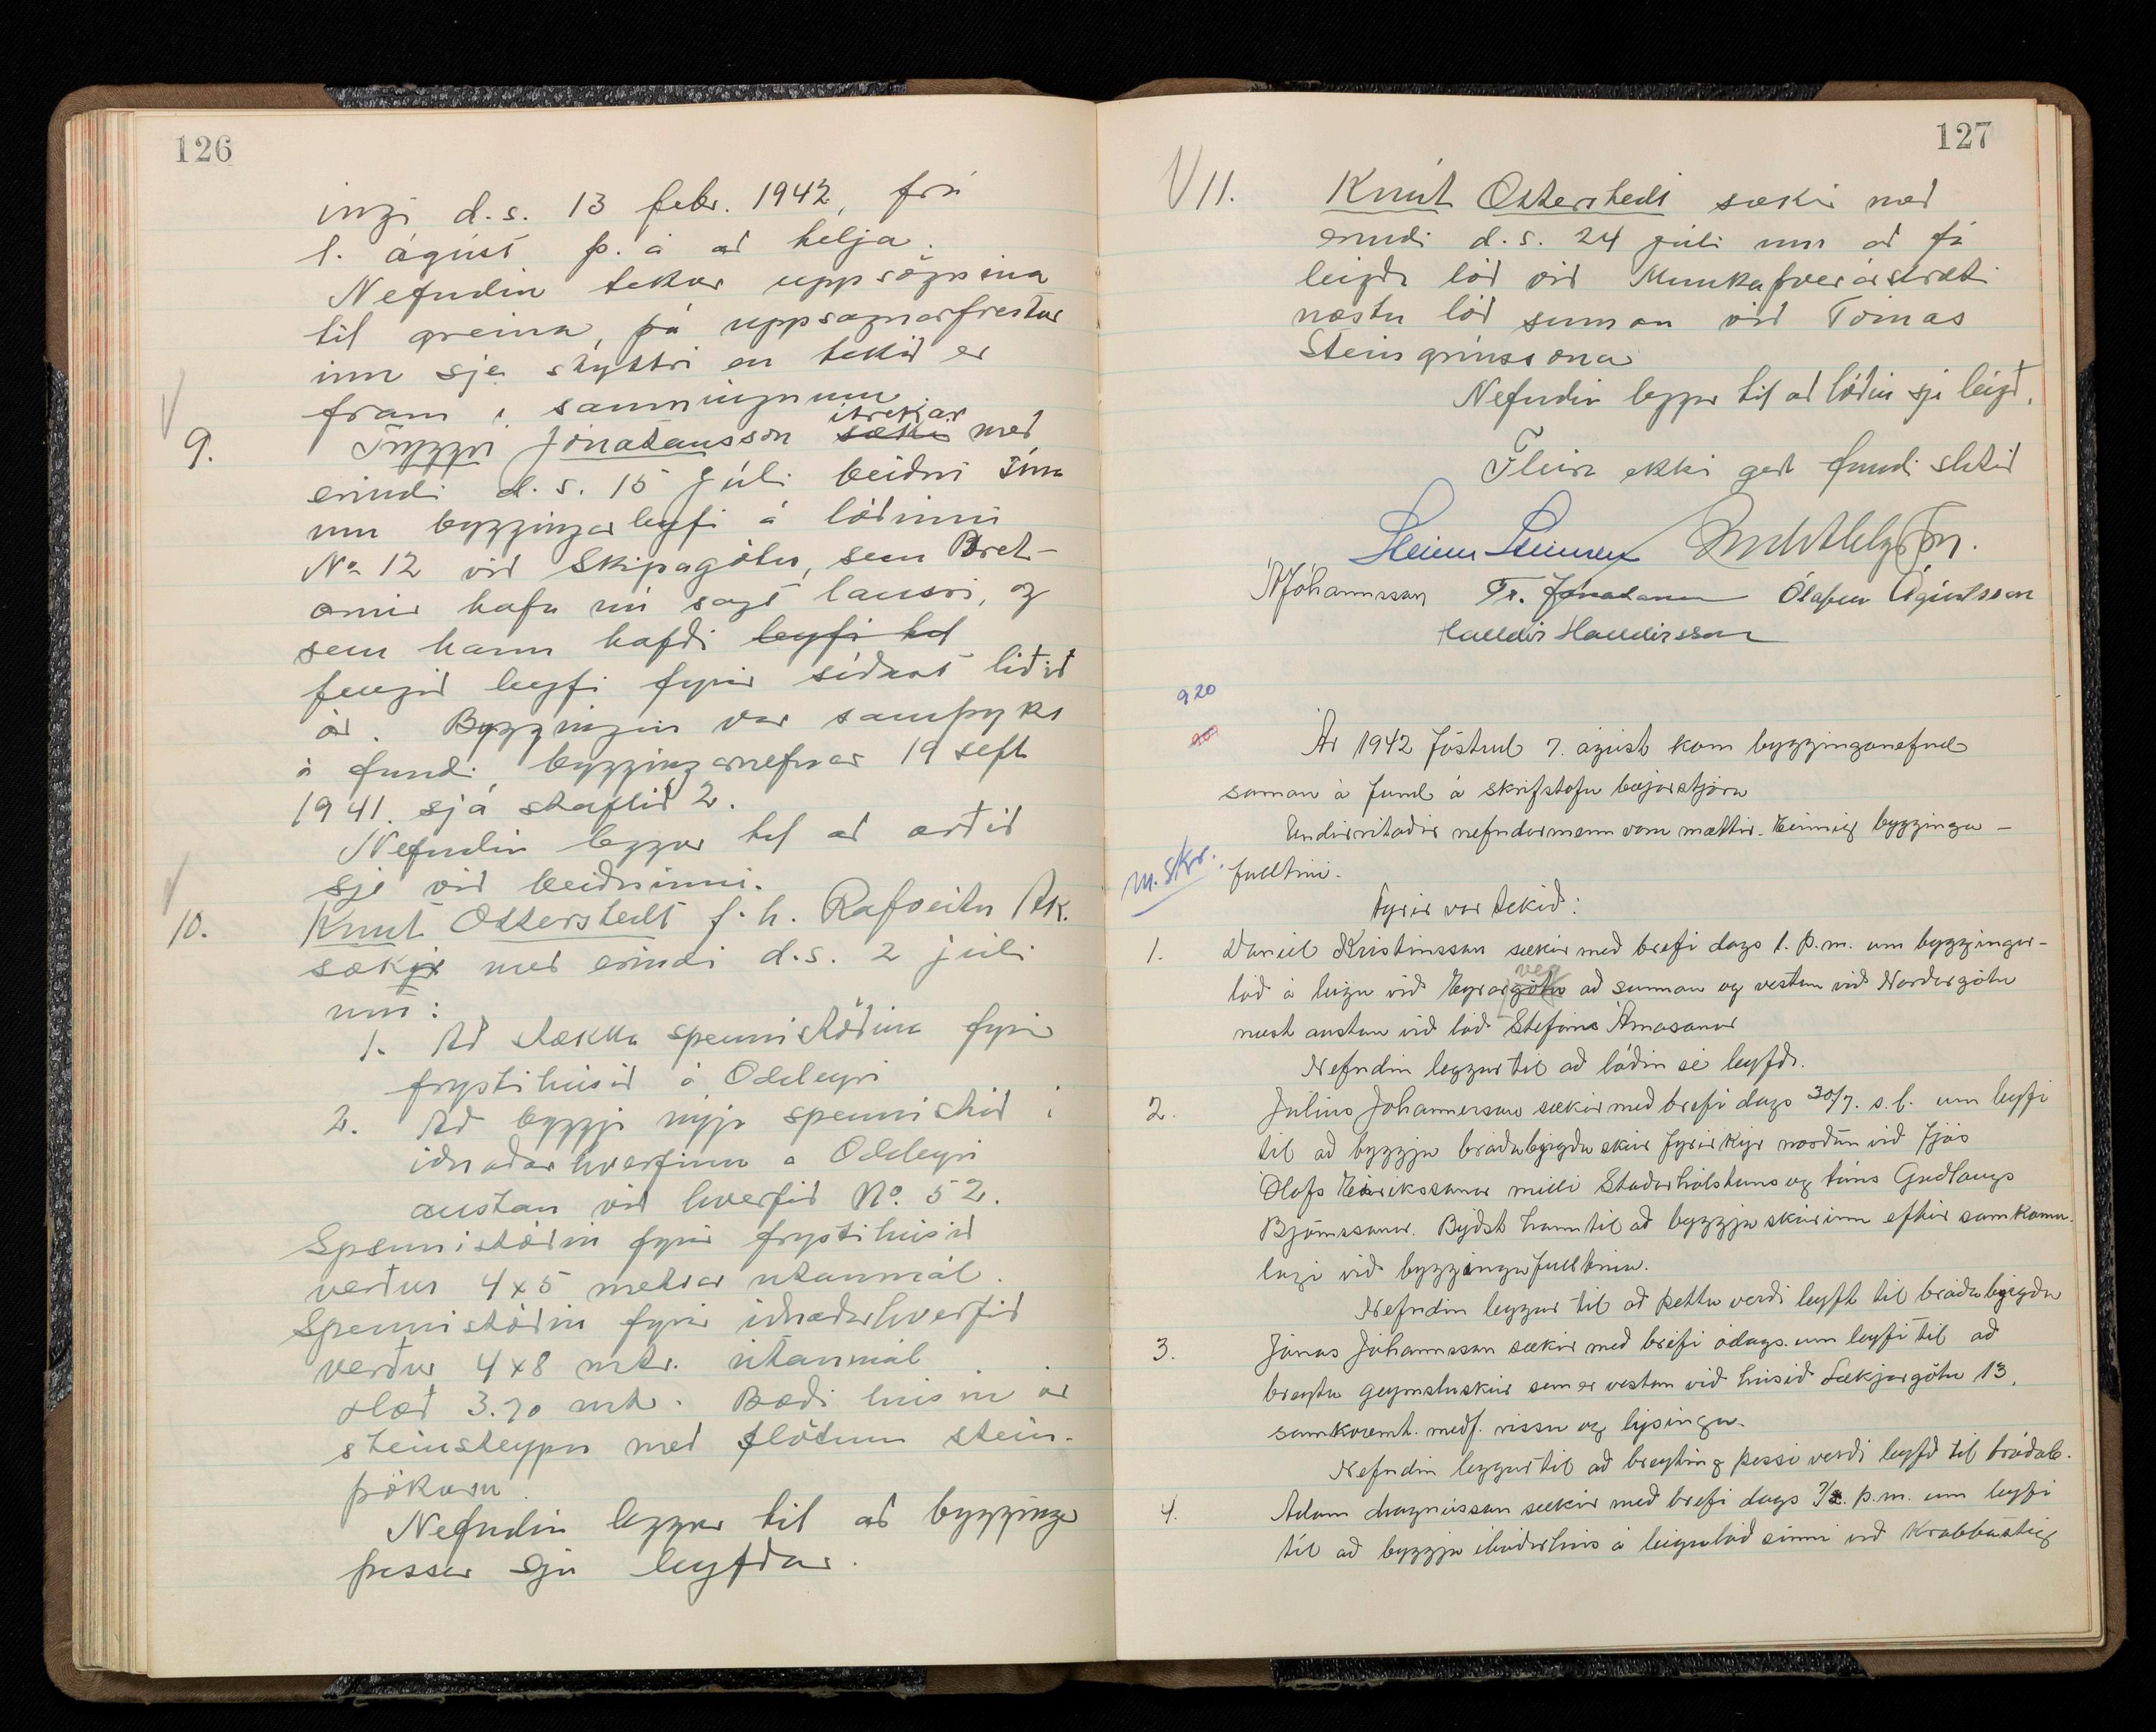 126
ingi d.s. 13 febr. 1942, frá
1. ágúst þ.á að telja.
Nefndin tekur uppsögnina
til greina, þá uppsagnarfrestur
inn sje styttri en tekið er
fram í samningnum.
9. Tryggvi Jónatansson ítrekar sækir með
erindi d.s. 15 júlí beiðni sína
um byggingarleyfi á lóðinni
No 12 við Skipagötu, sem Bret-
arnir hafa nú sagt lausri, og
sem hann hafði leyfi til
fengið leyfi fyrir síðast liðið
ár. Byggingin var samþykt
á fundi byggingarnefnar 19 sept
1941. sjá staflið 2.
Nefndin leggur til að orðið
sje við beiðninni.
10. Knut Otterstedt f.h. Rafveitu Ak.
sækir með erindi d.s. 2 júlí
um:
1. Að stækka spennistöðina fyrir
frystihúsið á Oddeyri
2. Að byggja nýja spennistöð í
iðnaðarhverfinu á Oddeyri
austan við hverfið No. 52.
Spennistöðin fyrir frystihúsið
verður 4x5 metrar utanmál.
Spennistöðin fyrir iðnaðarhverfið
verður 4x8 mtr. utanmál
Hæð 3.70 mtr. Bæði húsin úr
steinsteypu með flötum stein-
þökum.
Nefndin leggur til að byggingar
þessar sjeu leyfðar.
127
V 11. Knut Otterstedt sækir með
erindi d.s. 24 júlí um að fá
leigða lóð við Munkaþverárstræti
næstu lóð sunnan við Tómas
Steingrímssona
Nefndin leggur til að lóðin sje leigð.
Fleira ekki gert fundi slitið
Steinn Steinsen
Á Jóhannsson Tr. Jónatansson Ólafur Ágústsson
Halldór Halldórsson
920
Ár 1942 föstud 7. ágúst kom bygginganefnd
saman á fund á skrifstofu bæjarstjóra
Undirritaðir nefndarmenn voru mættir. Einnig bygginga-
m. skr. fulltrúi.
Fyrir var tekið:
1. Daníel Kristinsson sækir með brefi dags 1. þ.m. um byggingar-
veg
lóð á leigu við Eyrargötu að sunnan og vestan við Norðurgötu
næst austan við lóð Stefáns Árnasonar
Nefndin leggur til að lóðin sé leyfð.
2. Júlíus Jóhannesson sækir með brefi dags 30/7. s.l. um leyfi
til að byggja bráðabyrgðu skúr fyrir kýr norðan við fjós
Ólafs Eiríkssonar milli Staðarhólstúns og túns Guðlaugs
Björnssonar. Byðst hann til að byggja skúrinn eftir samkomu-
lagi við byggingafulltrúa.
Nefndin leggur til að þettu verði leyft til bráðabyrgðu
3. Jónas Jóhannsson sækir með brefi ódags. um leyfi til að
breyta geymsluskúr sem er vestan við húsið Lækjargötu 13,
samkvæmt. meðf. rissu og lýsingu.
Nefndin leggur til að breyting þessi verði leyfð til bráðab.
4. Adam Magnússon sækir með brefi dags þ.m. um leyfi
til að byggja íbúðarhús á leigulóð sinni við Krabbastíg